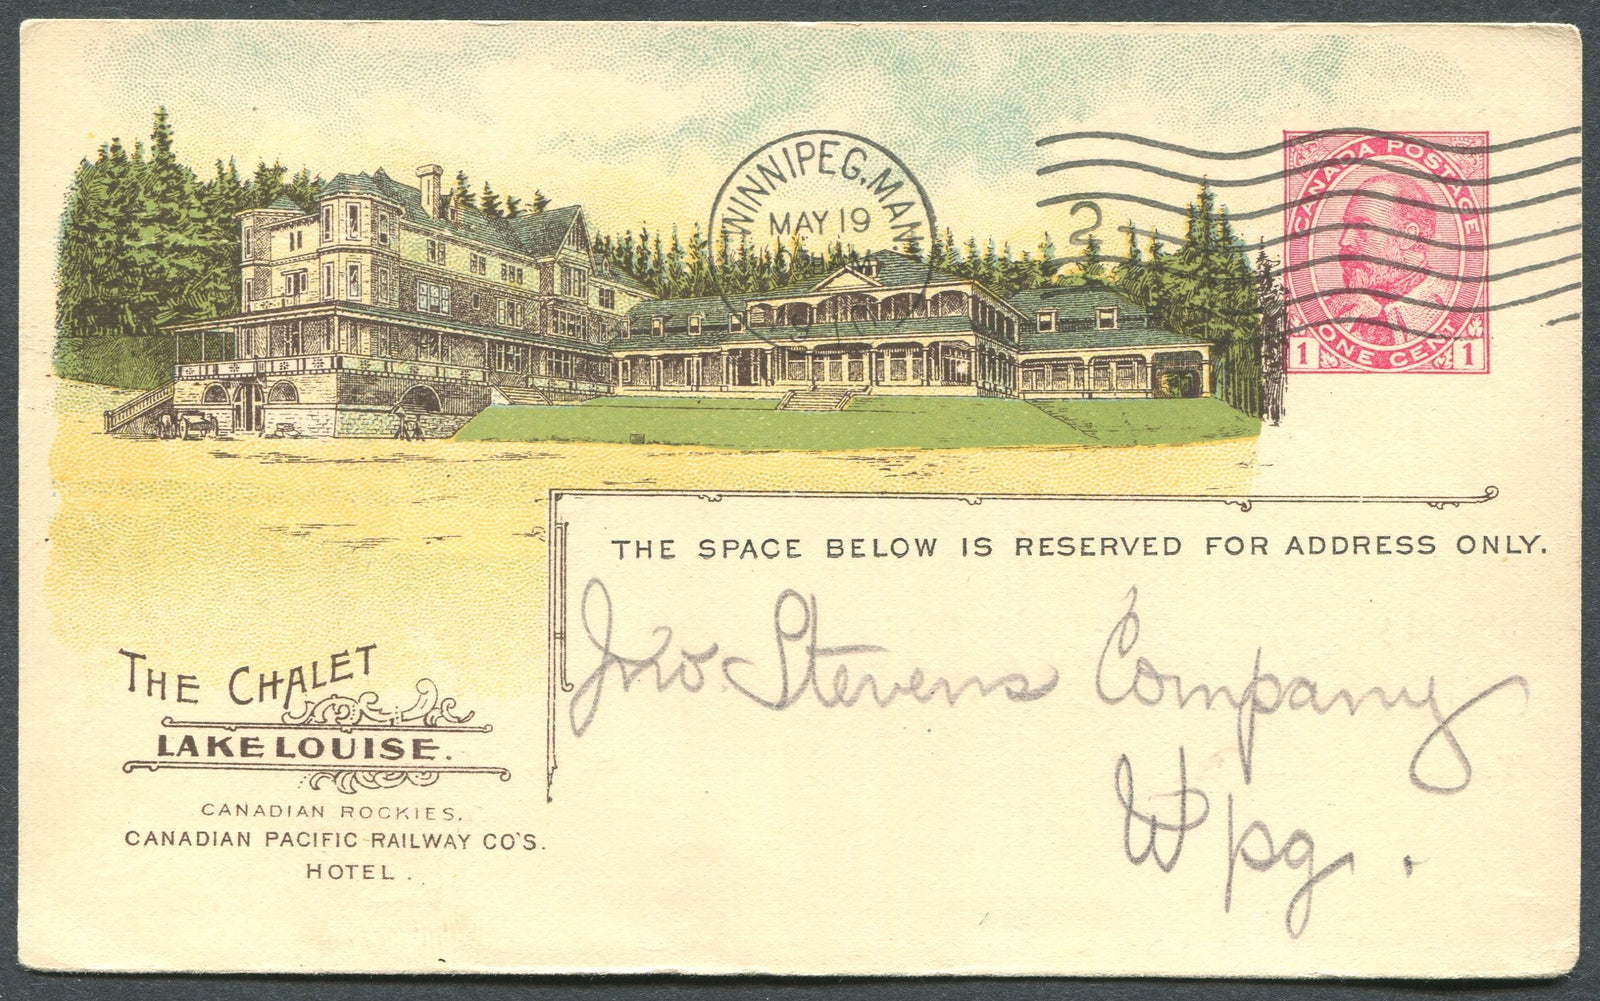 WINNIPEG, MAN.
MAY 19
2
CANADA POSTAGE
ONE CENT
1 1
THE SPACE BELOW IS RESERVED FOR ADDRESS ONLY.
Jno Stevens Company
Wpg.
THE CHALET
LAKE LOUISE.
CANADIAN ROCKIES.
CANADIAN PACIFIC RAILWAY CO'S.
HOTEL.